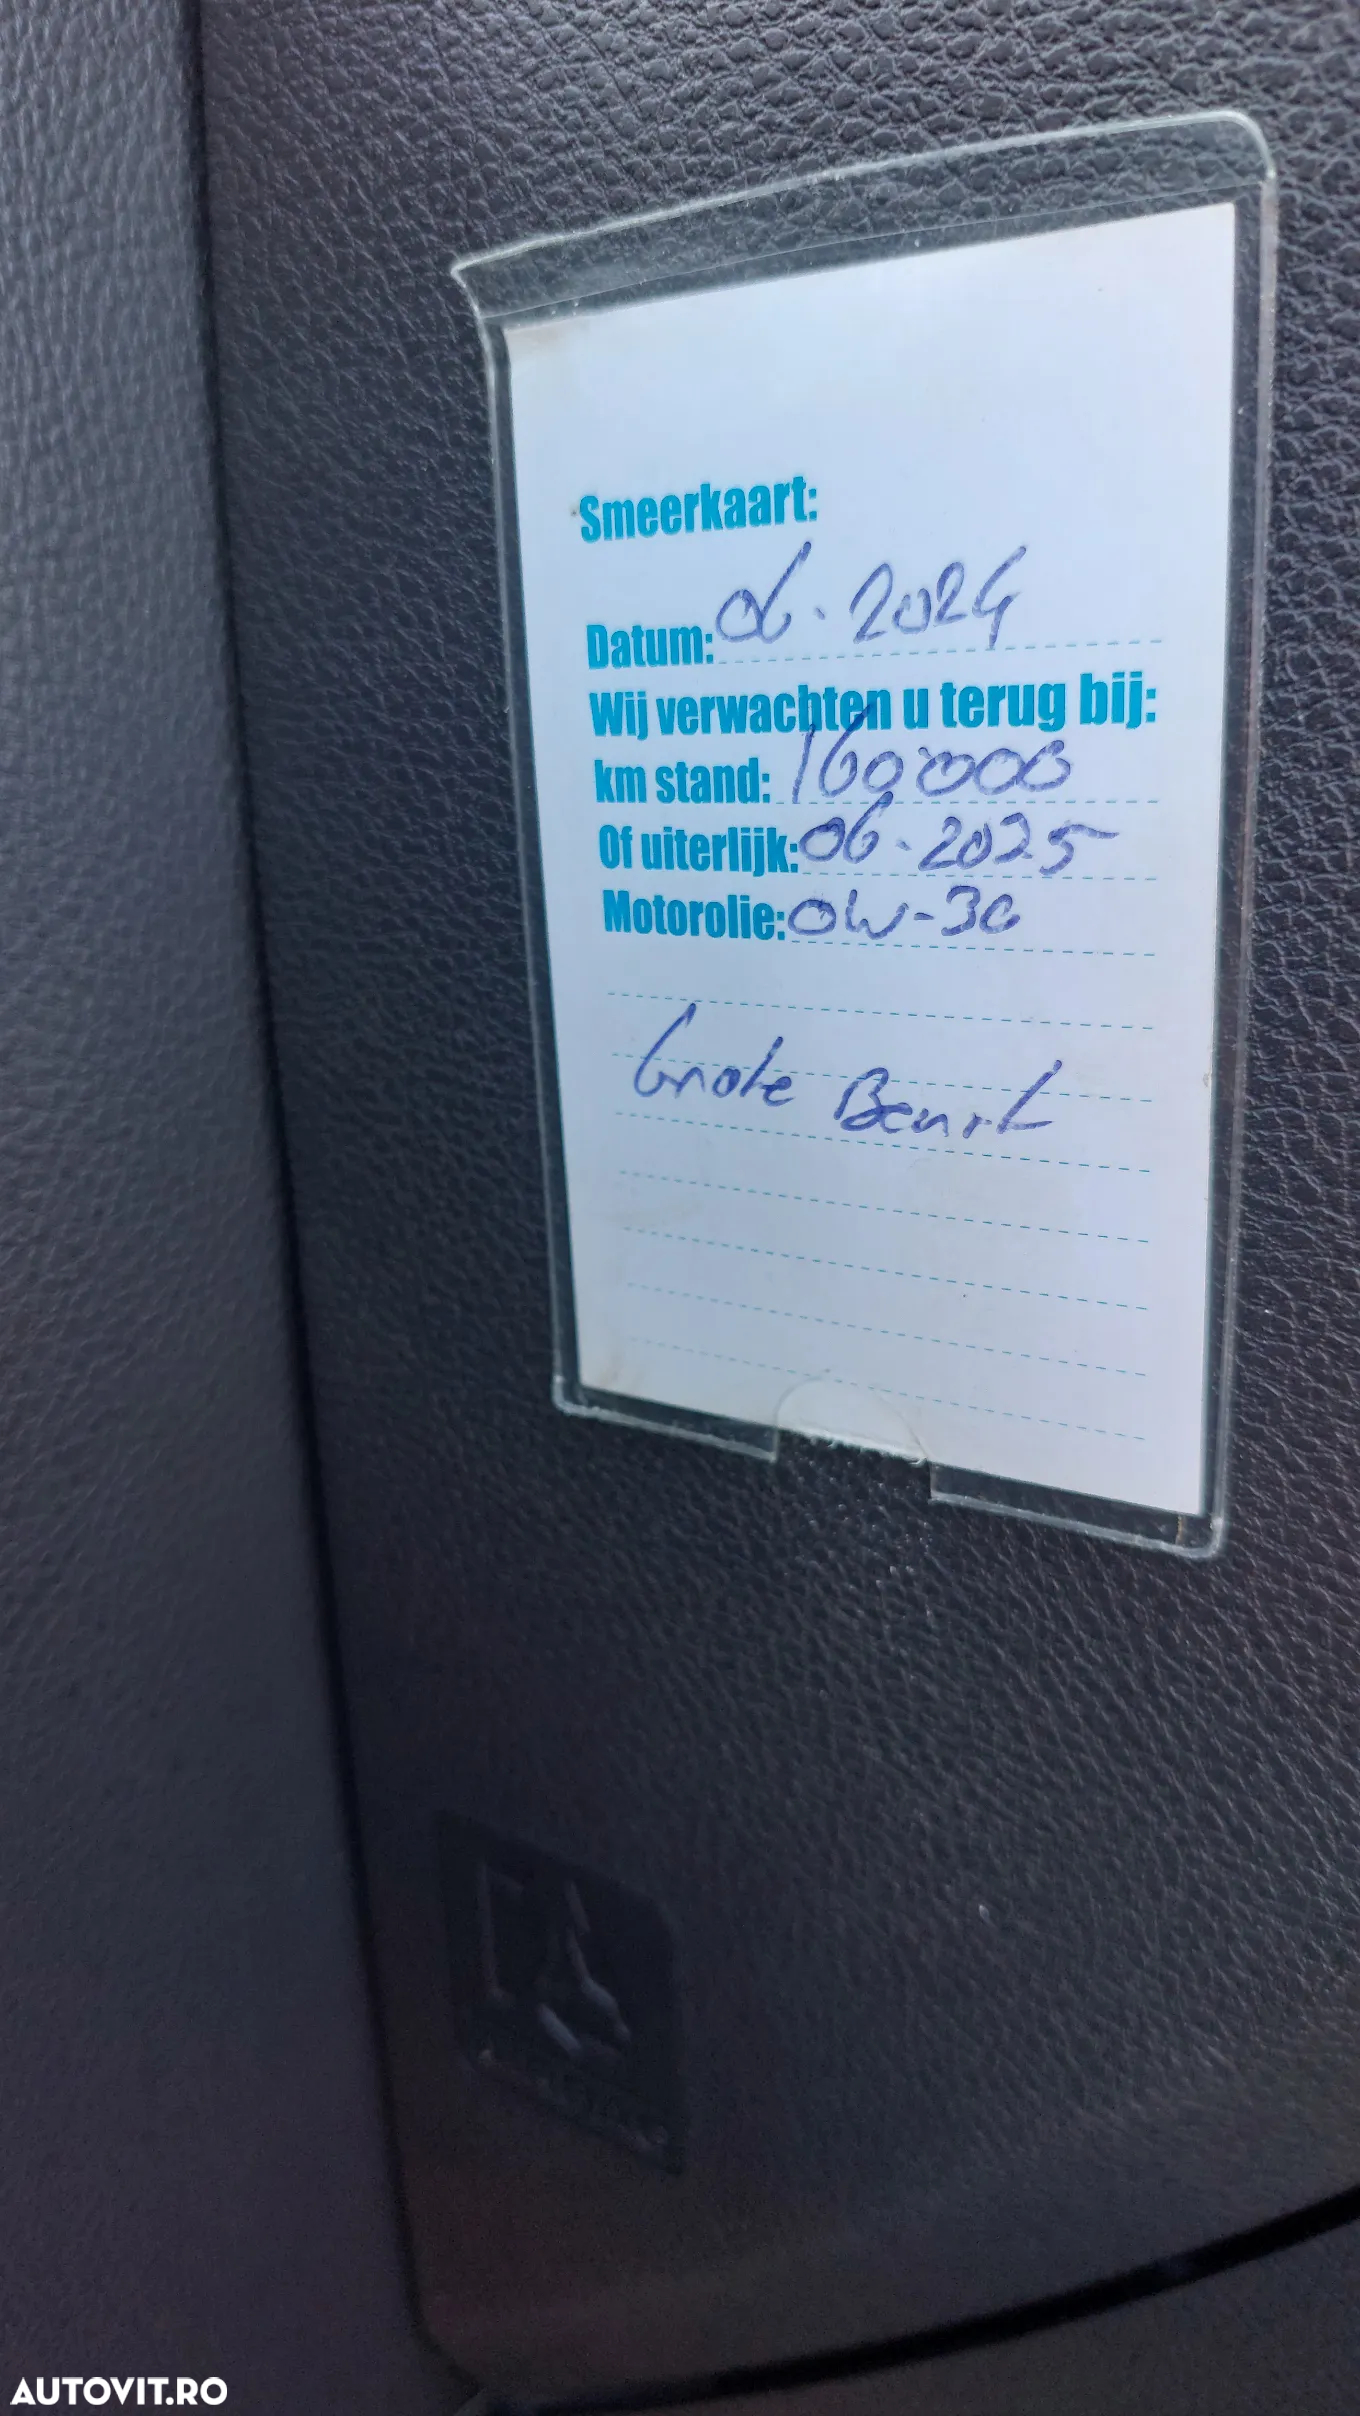 Smeerkaart:
Datum: 06.2024
Wij verwachten u terug bij:
km stand: 160.000
Of uiterlijk: 06.2025
Motorolie: 0W-30
Grote Beurt
AUTOVIT.RO